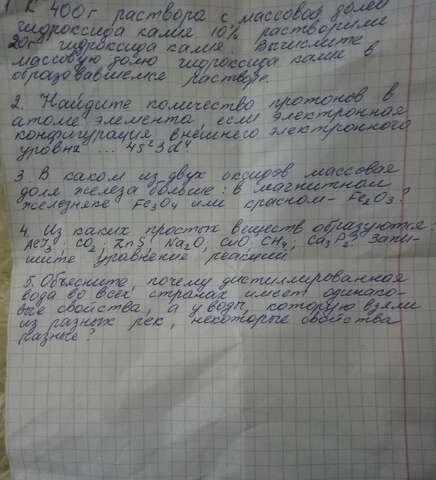 1. К 400г раствора с массовой долей
гидроксида калия 10% растворили
20г гидроксида калия. Вычислите
массовую долю гидроксида калия в
образовавшемся растворе.
2. Найдите количество протонов в
атоме элемента, если электронная
конфигурация внешнего электронного
уровня ... 4s² 3d⁴
3. В каком из двух оксидов массовая
доля железа больше: в магнитном
железняке Fe₃O₄ или красном - Fe₂O₃?
4. Из каких простых веществ образуются:
AlCl₃; CO₂; ZnS; Na₂O, CuO, CH₄, Ca₃P₂? Запи-
шите уравнение реакций
5. Объясните, почему дистиллированная
вода во всех странах имеет одинако-
вые свойства, а у воды, которую взяли
из разных рек, некоторые свойства
разные?